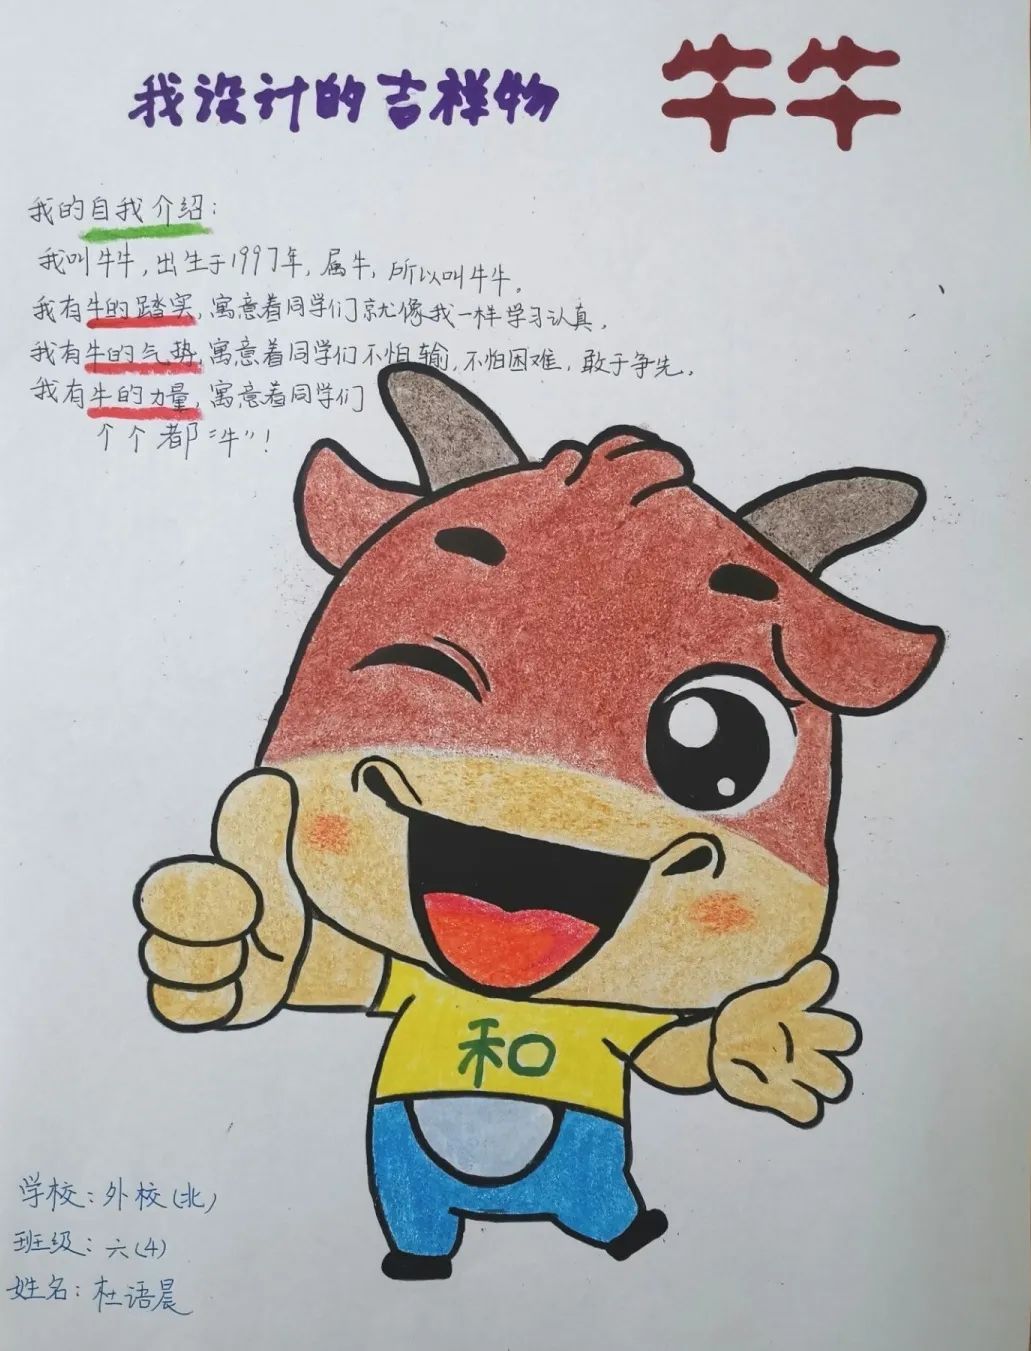 我设计的吉祥物
牛牛
我的自我介绍：
我叫牛牛，出生于1997年，属牛，所以叫牛牛。
我有牛的踏实，寓意着同学们就像我一样学习认真。
我有牛的气势，寓意着同学们不怕输，不怕困难，敢于争先。
我有牛的力量，寓意着同学们
个个都“牛”！
和
学校：外校（北）
班级：六（4）
姓名：杜语晨